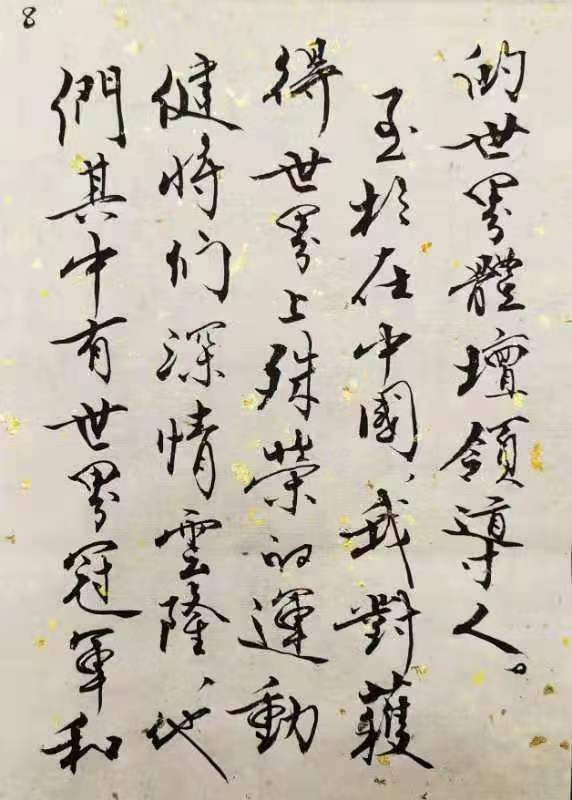 8
的世界體壇領導人。
至於在中國、我對獲
得世界上殊榮的運動
健将们深情雲隆、他
們其中有世界冠軍和